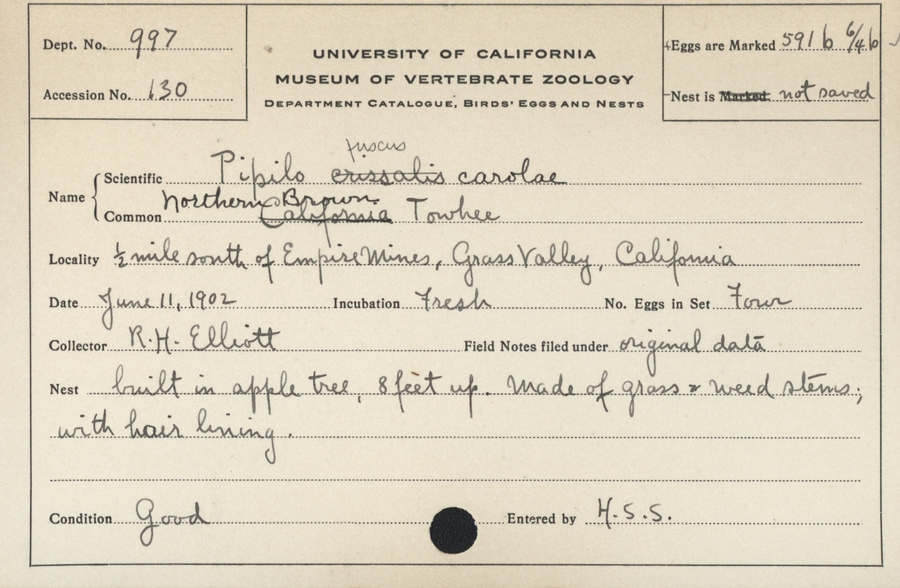 Dept. No. 997
Accession No. 130
UNIVERSITY OF CALIFORNIA
MUSEUM OF VERTEBRATE ZOOLOGY
DEPARTMENT CATALOGUE, BIRDS' EGGS AND NESTS
Eggs are Marked 591 b 6/4 b
Nest is Marked not saved
fuscus
Name Scientific Pipilo crissalis carolae
Northern Brown
Common California Towhee
Locality ½ mile south of Empire Mines, Grass Valley, California
Date June 11, 1902 Incubation Fresh No. Eggs in Set Four
Collector R. H. Elliott Field Notes filed under original data
Nest built in apple tree, 8 feet up. Made of grass & weed stems;
with hair lining.
Condition Good Entered by H. S. S.